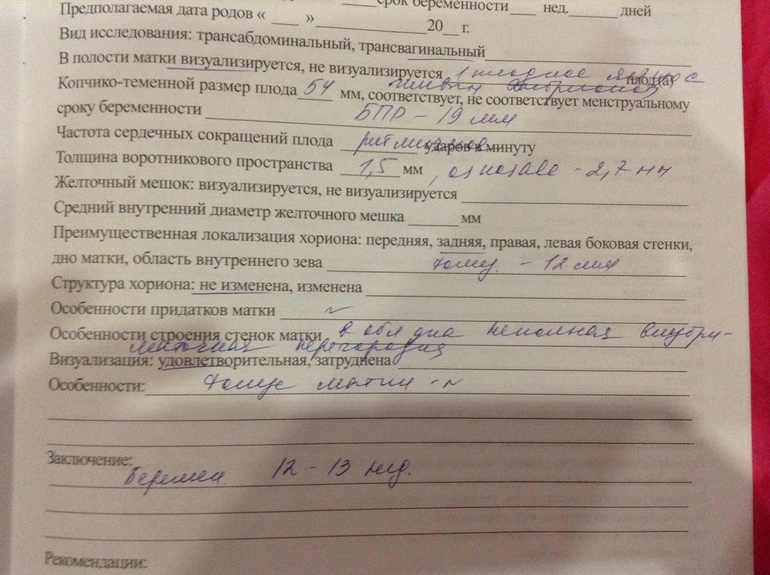 срок беременности ___ нед. ___ дней
Предполагаемая дата родов « ___ » ___ 20__ г.
Вид исследования: трансабдоминальный, трансвагинальный
В полости матки визуализируется, не визуализируется 1 плодное яйцо с плод(а)
живым эмбрионом
Копчико-теменной размер плода 54 мм, соответствует, не соответствует менструальному
сроку беременности БПР - 19 мм
Частота сердечных сокращений плода ритмичное ударов в минуту
Толщина воротникового пространства 1,5 мм, - 2,7 мм
Желточный мешок: визуализируется, не визуализируется
Средний внутренний диаметр желточного мешка ___ мм
Преимущественная локализация хориона: передняя, задняя, правая, левая боковая стенки,
дно матки, область внутреннего зева толщ. - 12 мм
Структура хориона: не изменена, изменена
Особенности придатков матки N
Особенности строения стенок матки в обл дна неполная внутри-
маточная перегородка
Визуализация: удовлетворительная, затруднена
Особенности: тонус матки - N
Заключение:
Беремен. 12 - 13 нед.
Рекомендации: